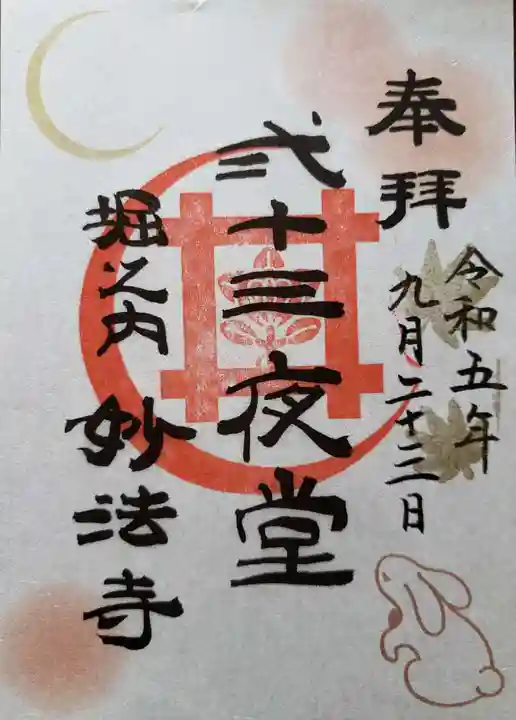 奉拝
令和五年
九月二十三日
弐十三夜堂
堀之内 妙法寺